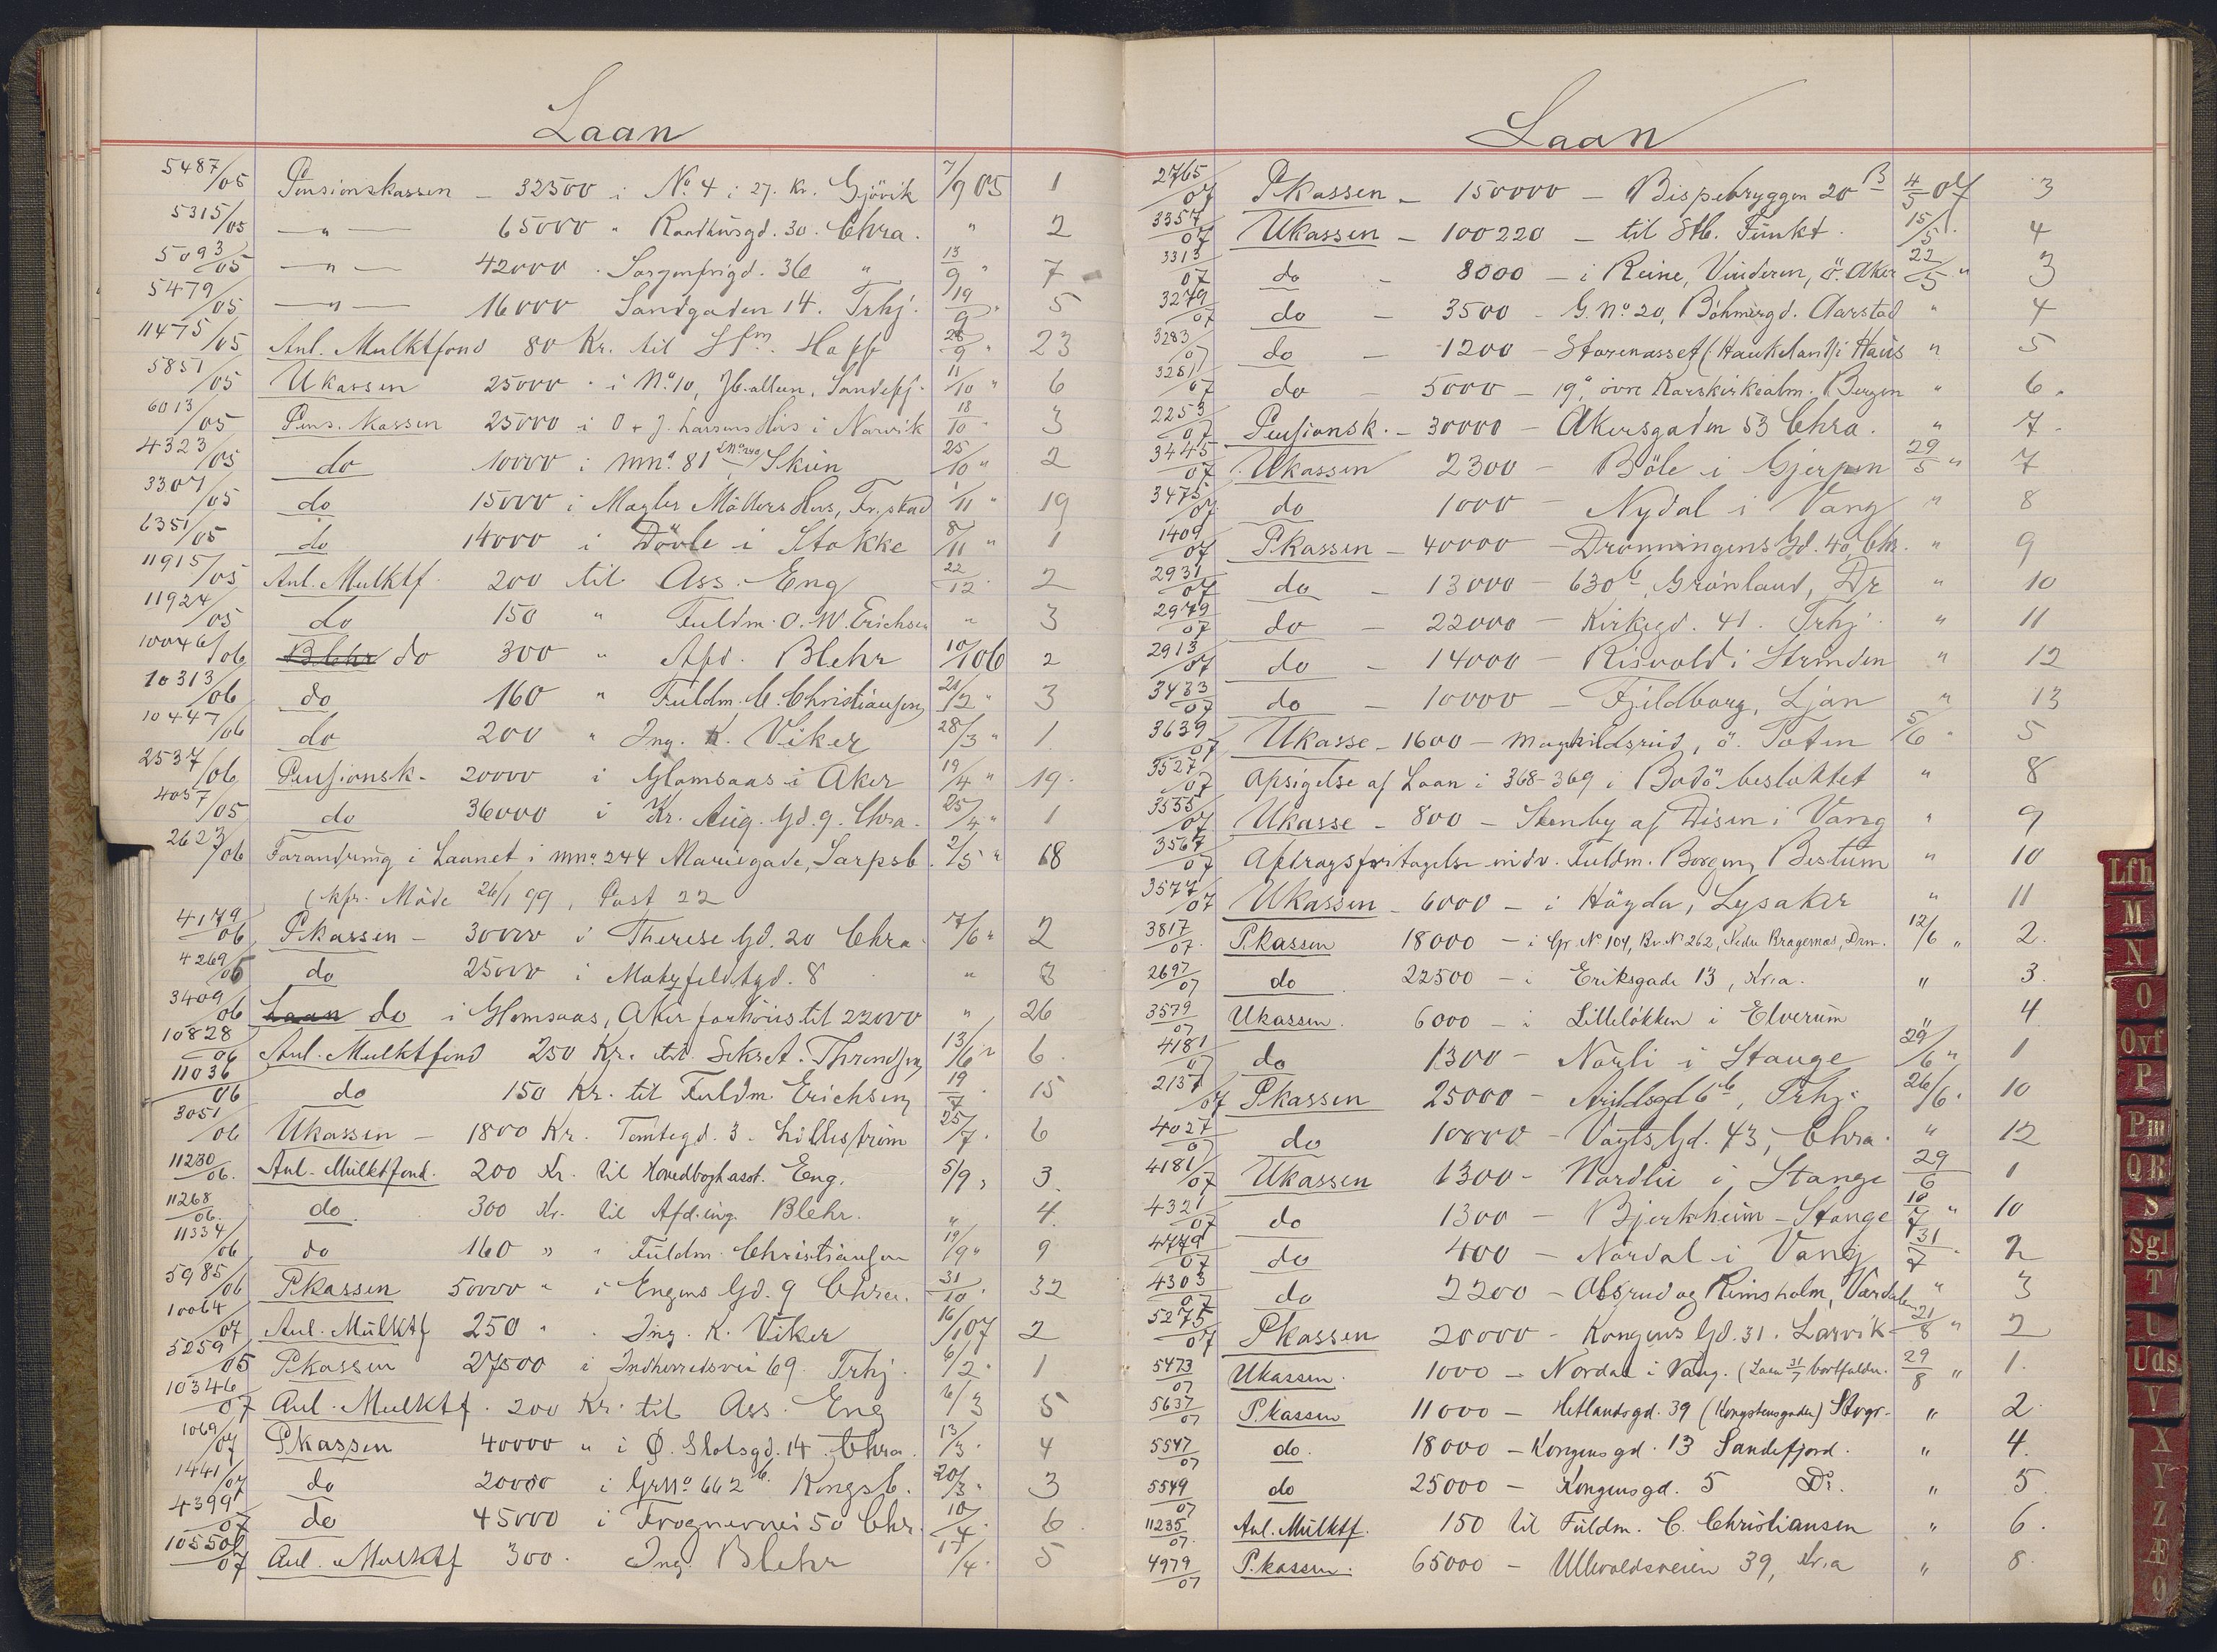 Laan
5487/05 Pensionskassen - 32500 i No 4 i 27. Kr. Gjövik 7/9 05 1
5315/05 — " — 65000 " Raadhusgd. 30. Chra. " 2
5093/05 — " — 42000 . Sorgenfrigd. 36 " 13/9 " 7
5479/05 — " — 16000 Sandgaden 14. Trhj. 19/9 " 5
11475/05 Anl. Mulktfond 80 Kr. til Hoff 28/9 " 23
5851/05 Ukassen 25000 . i No 10, Sandefj. 11/10 " 6
6013/05 Pens. Kassen 25000 i O & J. Larsens Hus i Narvik 18/10 " 3
4323/05 do 10000 i mno. 81 Skien 25/10 " 2
3307/05 do 15000 i Magler Möllers Hus, Fr.stad 1/11 " 19
6351/05 do 14000 i Dövle i Stokke 8/11 " 1
11915/05 Anl. Mulktf. 200 til Ass. Eng 22/12 . 2
11924/05 do 150 " Fuldm. O. W. Erichsen " 3
10046/06 Blehr do 300 " Afd. Blehr 10/1 06 2
10313/06 do 160 " Fuldm. C. Christiansen 21/2 " 3
10447/06 do 200 " Ing. K. Viker 28/3 " 1
2537/06 Pensionsk. 20000 i Glomsaas i Aker 19/4 " 19.
4057/05 do 36000 i Kr. Aug. Gd. 9. Chra. 25/4 " 1
2623/06 Forandring i Laanet i mno 244 Mariegade, Sarpsb. 2/5 " 18
(kfr. Möde 26/1 99, Post 22
4179/06 Pkassen - 30000 i Therese Gd. 20 Chra. 7/6 " 2
4269/06 do 25000 i Motzfeldtsgd. 8 " 3
3409/06 Laan do i Glomsaas, Aker forhöies til 22000 " 26
10828/06 Anl. Mulktfond 250 Kr. til Sekret. Throndsen 13/6 " 6.
11036/06 do 150 Kr. til Fuldm. Erichsen 19/7 . 15
3051/06 Ukassen - 1800 Kr. Tomtegd. 3. Lilleström 25/7 . 6
11230/06. Anl. Mulktfond. 200 Kr. til Hovedboghasst. Eng. 5/9 " 3.
11268/06. do. 300 Kr. til Afd.ing. Blehr. " 4.
11334/06 do 160 " " Fuldm. Christiansen 19/9 " 9
5985/06 Pkassen 50000 " i Engens Gd. 9 Chra. 31/10 . 32
10064/07 Anl. Mulktf 250 " . Ing. K. Viker 16/1 07 2
5259/05 Pkassen 27500 i Indherredsvei 69 Trhj. 6/2 . 1
10346/07 Anl. Mulktf. 200 Kr. til Ass. Eng 6/3 5
1069/07 Pkassen 40000 " i Ø. Slotsgd. 14 Chra. 13/3 . 4
1441/07 do 20000 i GrNo 662 b. Kongsb. 20/3 " 3
4399/07 do 45000 i Frognervei 50 Chr. 10/4 . 6.
10550/07 Anl. Mulktf 300. Ing. Blehr 17/4 . 5
Laan
2765/07 Pkassen - 150000 - Bispebryggen 20 B 4/5 07 3
3357/07 Ukassen - 100220 - til Stb. Funkt. 15/5 . 4
3313/07 do - 8000 - i Reine, Vinderen, ö. Aker 22/5 " 3
3279/07 do - 3500 - G. No 20, Böhmergd. Aarstad " 4
3283/07 do - 1200 - Storenasset (Haukeland) i Haus " 5
3281/07 do - 5000 - 19a, övre Korskirkealm. Bergen " 6.
2253/07 Pensionsk. - 30000 - Akersgaden 53 Chra. " 7.
3445/07 Ukassen 2300 - Böle i Gjerpen 29/5 " 7
3475/07 do 1000 - Nydal i Vang " 8
1409/07 Pkassen - 40000 - Dronningens Gd. 40, Chr. " 9
2931/07 do - 13000 - 630 b, Grønland, Dr " 10
2979/07 do - 22000 - Kirkegd. 41. Trhj. " 11
2913/07 do - 14000 - Risvold i Strinden " 12
3433/07 do - 10000 - Fjeldborg, Ljan " 13
3639/07 Ukasse - 1600 - Magnhildsrud, ö. Toten 5/6 " 5
3527/07 Opsigelse af Laan i 368-369 i Bodö besluttet " 8
3555/07 Ukasse - 800 - Stenby af Disen i Vang " 9
3567/07 Afdragsfritagelse indv. Fuldm. Borgen, Bestum " 10
3577/07 Ukassen - 6000 - i Höyda, Lysaker " 11
3817/07. P.kassen 18000 - i Gr. No 104, Br. No 262, Nedre Bragernæs, Drm. 12/6 " 2.
2697/07 do 22500 - i Eriksgade 13, Kr.a. " 3.
3579/07 Ukassen. 6000 - i Lilleløkken i Elverum " 4
4181/07 do 1300 - Nörli i Stange 29/6 " 1
2137/07 Pkassen 25000 - Arildsgd 6 b, Trhj. 26/6 . 10
4027/07 do 10000 - Vogts Gd. 43, Chra. " 12
4181/07 Ukassen 1300 - Nordlie i Stange 29/6 1
4321/07 do 1300 - Bjerkheim - Stange 10/7 " 10
4779/07 do 400 - Nordal i Vang 31/7 . 2
4303/07 do 2200 - Olsrud og Rimsholm, Værdalen " 3
5275/07 Pkassen 20000 - Kongens Gd. 31. Larvik 21/8 " 2
5473/07 Ukassen. 1000 - Nordal i Vang. (Laan 31/7 bortfalder. 29/8 " 1.
5637/07 P.kassen 11000 - Hetlandsgd. 39 (Kongstensgaden) Stvgr. " 2.
5547/07 do. 18000 - Kongens gd. 13 Sandefjord. " 4.
5549/07 do 25000 - Kongensgd. 5 Do. " 5.
11235/07. Anl. Mulktf. 150 til Fuldm. C. Christiansen " 6.
4979/07 P.kassen. 65000 - Ullevoldsveien 39, Kr.a " 8.
Lfh
M
N
O
Ovf
P
Pm
QR
S
Sgl
T
U
Uds
V
X
Y
Z
Æ
Ø